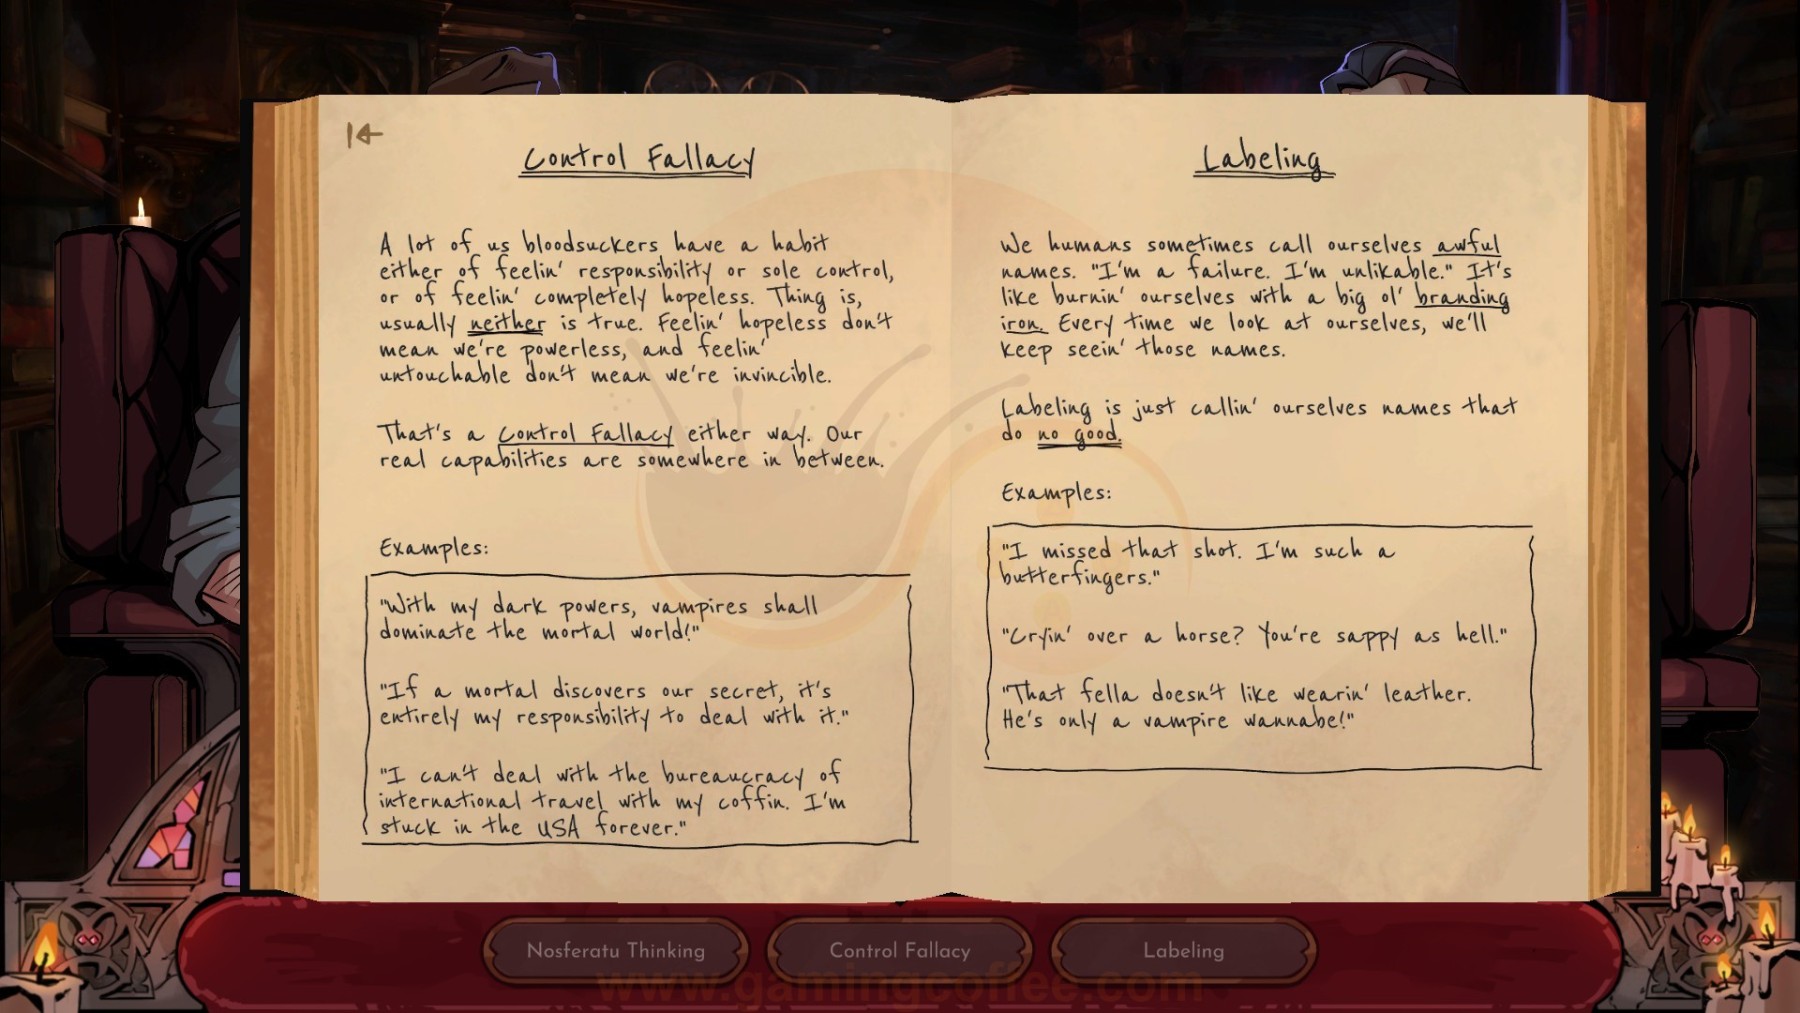 Control Fallacy
A lot of us bloodsuckers have a habit
either of feelin' responsibility or sole control,
or of feelin' completely hopeless. Thing is,
usually neither is true. Feelin' hopeless don't
mean we're powerless, and feelin'
untouchable don't mean we're invincible.
That's a Control Fallacy either way. Our
real capabilities are somewhere in between.
Examples:
"With my dark powers, vampires shall
dominate the mortal world!"
"If a mortal discovers our secret, it's
entirely my responsibility to deal with it."
"I can't deal with the bureaucracy of
international travel with my coffin. I'm
stuck in the USA forever."
Labeling
We humans sometimes call ourselves awful
names. "I'm a failure. I'm unlikable." It's
like burnin' ourselves with a big ol' branding
iron. Every time we look at ourselves, we'll
keep seein' those names.
Labeling is just callin' ourselves names that
do no good.
Examples:
"I missed that shot. I'm such a
butterfingers."
"Cryin' over a horse? You're sappy as hell."
"That fella doesn't like wearin' leather.
He's only a vampire wannabe!"
Nosferatu Thinking
Control Fallacy
Labeling
www.gamingcoffee.com